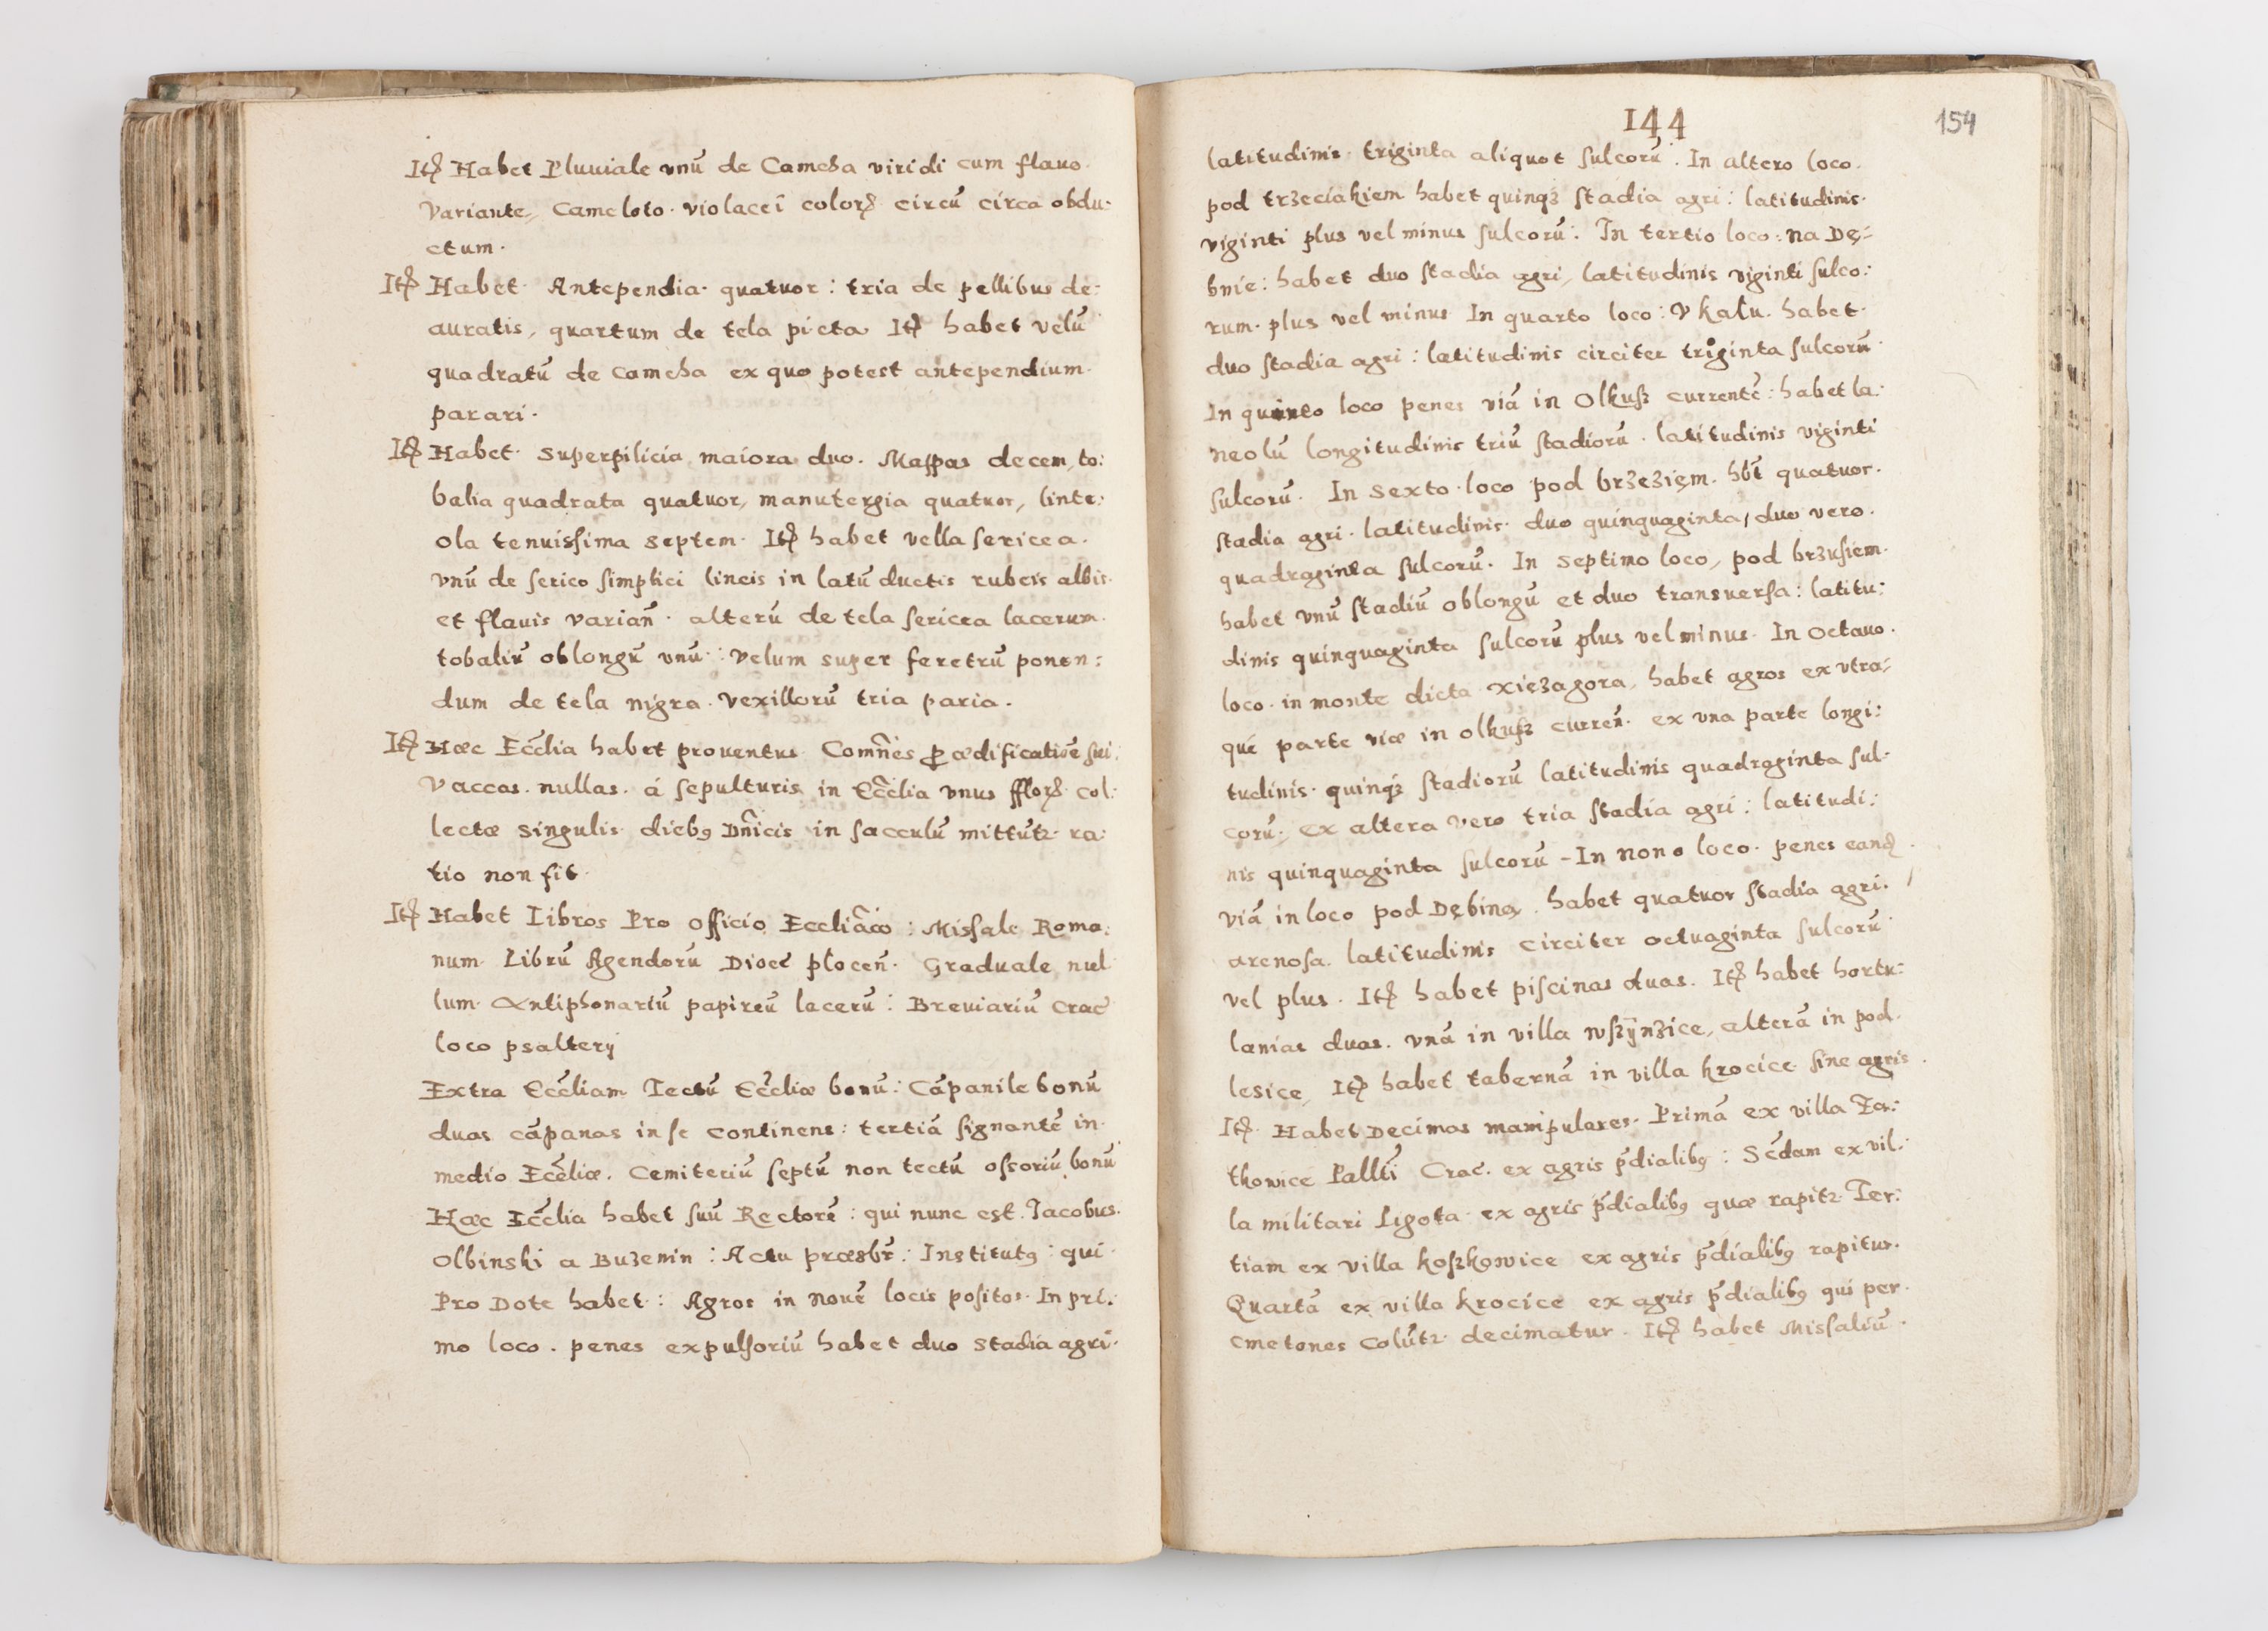 Itꝫ Habet Pluuiale vnū de Camcha viridi cum flauo
Variante, Cameloto violacei colorꝭ circū circa obdu:
ctum.
Itꝫ Habet Antependia quatuor: tria de pellibus de:
auratis, quartum de tela picta Itꝫ habet velū
quadratū de camcha ex quo potest antependium
parari.
Itꝫ Habet superpilicia maiora duo. Mappas decem, to:
balia quadrata quatuor, manutergia quatuor, linte:
ola tenuissima septem. Itꝫ habet vella sericea.
vnū de serico simplici lineis in latū ductis rubeis albis
et flauis varian̄. alterū de tela sericea lacerum
tobaliū oblongū vnū: velum super feretrū ponen:
dum de tela nigra. vexillorū tria paria.
Itꝫ Hæc Eccl̄ia habet prouentus Com̄nes ꝓ ædificatiōe sui:
Vaccas nullas. á sepulturis in Eccl̄ia vnus fflorꝭ col:
lectæ singulis diebꝰ Dn̄icis in sacculū mittūtꝛ ra:
tio non fit.
Itꝫ Habet Libros Pro officio Eccliāco: Missale Roma:
num Librū Agendorū Dioec̄ plocen̄. Graduale nul
lum Antiphonariū papireū lacerū: Breuiariū Crac̄
loco psalterij
Extra Eccl̄iam Tectū Eccl̄iæ bonū: Cāpanile bonū
duas cāpanas in se continens: tertiā signantē in
medio Eccl̄iæ. Cemiteriū septū non tectū ossoriū bonū
Hæc Eccl̄ia habet suū Rectorē: qui nunc est Jacobus
Olbinski a Buzenin: Actu præsbr̄: Institutꝰ: qui
Pro Dote habet: Agros in nouē locis positos. In pri:
mo loco. penes expulsoriū habet duo stadia agri.
144
154
latitudinis triginta aliquot sulcorū. In altero loco
pod trzeciakiem habet quinqꝫ stadia agri: latitudinis
viginti plus vel minus sulcorū: In tertio loco: na Dę:
bnie: habet duo stadia agri, latitudinis viginti sulco:
rum plus vel minus In quarto loco: V kału habet
duo stadia agri: latitudinis circiter triginta sulcorū
In quinto loco penes viā in Olkusz currentē: habet la:
neolū longitudinis triū stadiorū. latitudinis viginti
sulcorū. In sexto loco pod brzeziem. hb̄t quatuor
stadia agri. latitudinis duo quinquaginta, duo vero
quadraginta sulcorū. In septimo loco, pod brzusiem
habet vnū stadiū oblongū et duo transuersa: latitu:
dinis quinquaginta sulcorū plus vel minus. In octauo
loco in monte dicta xięzagora, habet agros ex vtra:
qué parte viæ in olkusz curren̄. ex vna parte longi:
tudinis quinqꝫ stadiorū latitudinis quadraginta sul:
corū, Ex altera vero tria stadia agri: latitudi:
nis quinquaginta sulcorū - In nono loco. penes eandꝫ
viā in loco pod Dębiną. habet quatuor stadia agri
arenosa latitudinis circiter octuaginta sulcorū
vel plus. Itꝫ habet piscinas duas. Itꝫ habet hortu:
lanias duas. vnā in villa wszÿnzice, alterā in pod
lesice, Itꝫ habet tabernā in villa krocice sine agris.
Itꝫ Habet Decimas manipulares. Primā ex villa Za:
thowice Pallt̄i Crac̄. ex agris p̄dialibꝰ: Sēdam ex vil:
la militari Ligota ex agris p̄dialibꝰ quæ rapitꝛ Ter:
tiam ex villa koszkowice ex agris p̄dialibꝰ rapitur.
Quartā ex villa krocice ex agris p̄dialibꝰ qui per
cmetones colūtꝛ decimatur. Itꝫ habet Missaliū